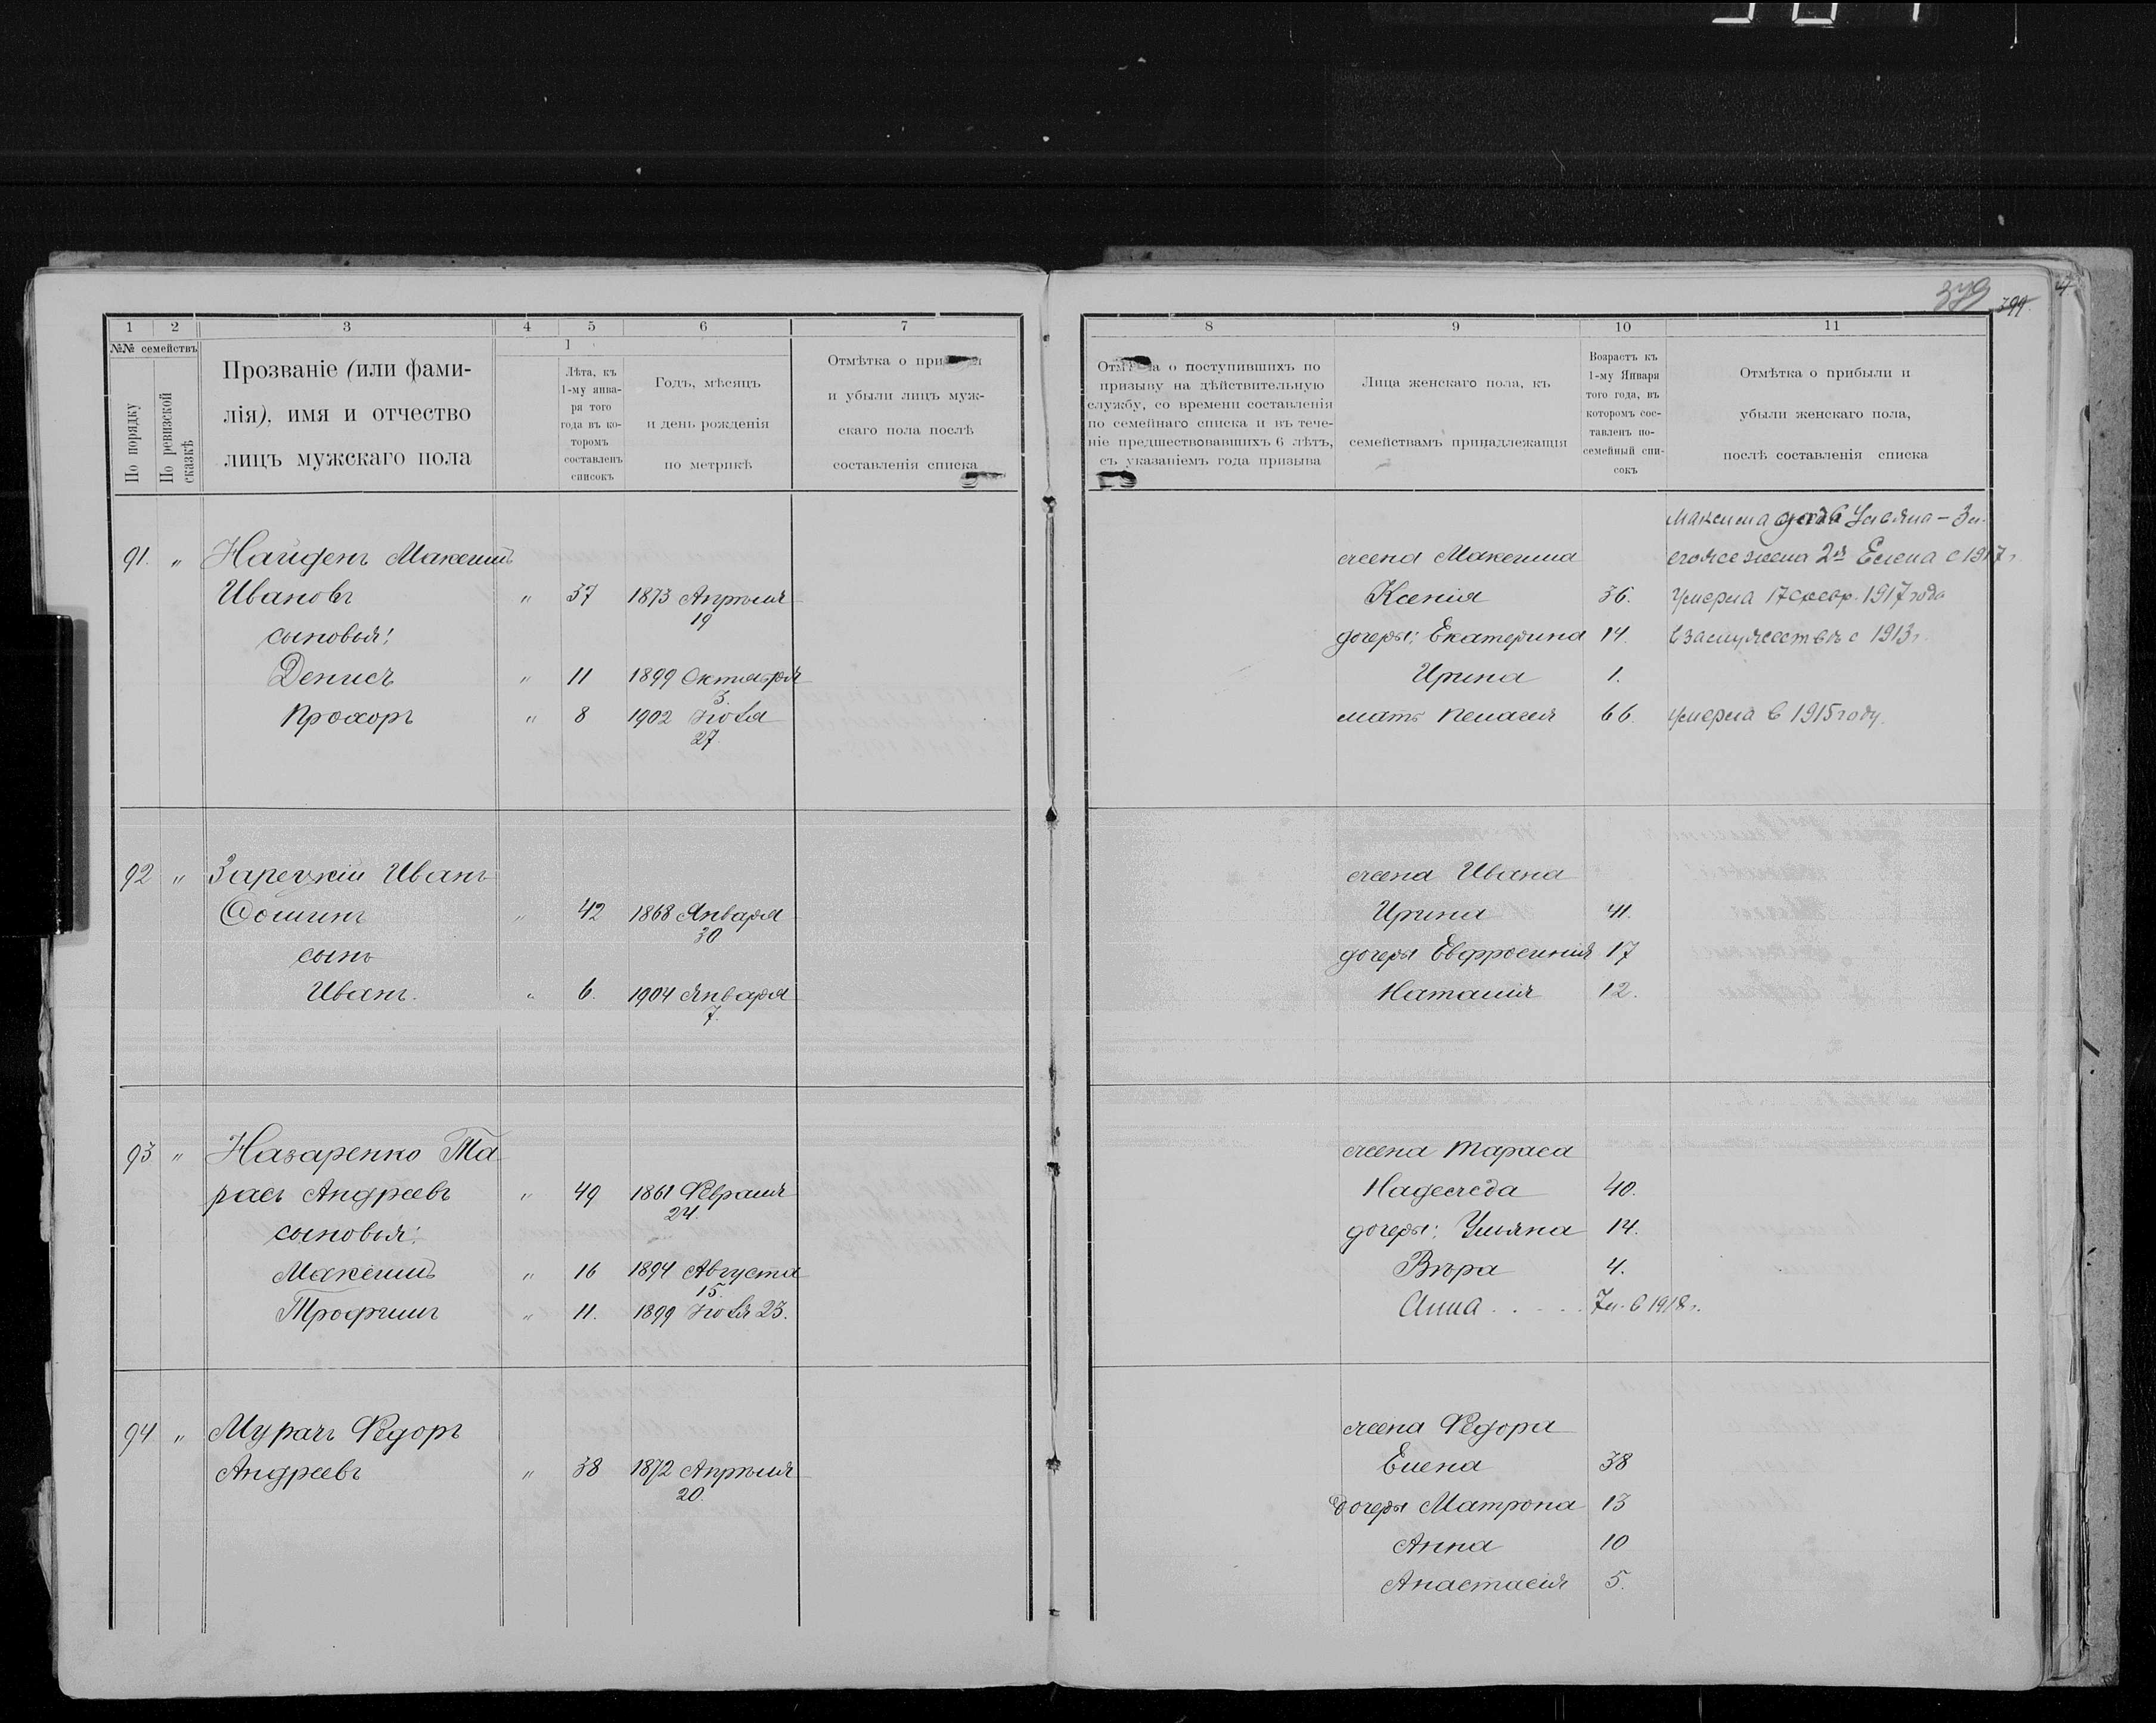 379 394
1 2 3 4 5 6 7
№№ семействъ
По порядку
По ревизской сказкѣ
Прозваніе (или фами-
лія), имя и отчество
лицъ мужскаго пола
1
Лѣта, къ
1-му янва-
ря того
года въ ко-
торомъ
составленъ
списокъ
Годъ, мѣсяцъ
и день рожденія
по метрикѣ
Отмѣтка о при
и убыли лицъ муж-
скаго пола послѣ
составленія списка
91. „ Найденъ Максимъ
Ивановъ „ 37 1873 Апрѣля
19
сыновья:
Денисъ „ 11 1899 Октября
3.
Прохоръ „ 8 1902 Іюля
27.
92 „ Зарецкій Иванъ
Фоминъ „ 42 1868 Января
30
сынъ
Иванъ. „ 6. 1904 Января
7.
93 „ Назаренко Та
расъ Андреевъ „ 49 1861 Февраля
24.
сыновья:
Максимъ „ 16 1894 Августа
15.
Трофимъ „ 11. 1899 Іюля 23.
94 „ Мурачъ Федоръ
Андреевъ „ 38 1872 Апрѣля
20.
8 9 10 11
Отм а о поступившихъ по
призыву на дѣйствительную
службу, со времени составленія
по семейнаго списка и въ тече-
ніе предшествовавшихъ 6 лѣтъ,
съ указаніемъ года призыва
Лица женскаго пола, къ
семействамъ принадлежащія
Возрастъ къ
1-му Января
того года, въ
которомъ сос-
тавленъ по-
семейный спи-
сокъ
Отмѣтка о прибыли и
убыли женскаго пола,
послѣ составленія списка
Максима дочь Ульяна – 3 м.
жена Максима его же жена 2я Елена с 1917 г.
Ксенія 36. Умерла 17 февр. 1917 года
дочери: Екатерина 14. в замужествѣ с 1913 г.
Ирина 1.
мать Пелагея 66. умерла в 1915 году.
жена Ивана
Ирина 41.
дочери Евфросинія 17
Наталія 12.
жена Тараса
Надежда 40.
дочери: Ульяна 14.
Вѣра 4.
Анна . . . . . 7 л. в 1918 г.
жена Федора
Елена 38
Дочери Матрона 13
Анна 10
Анастасія 5.